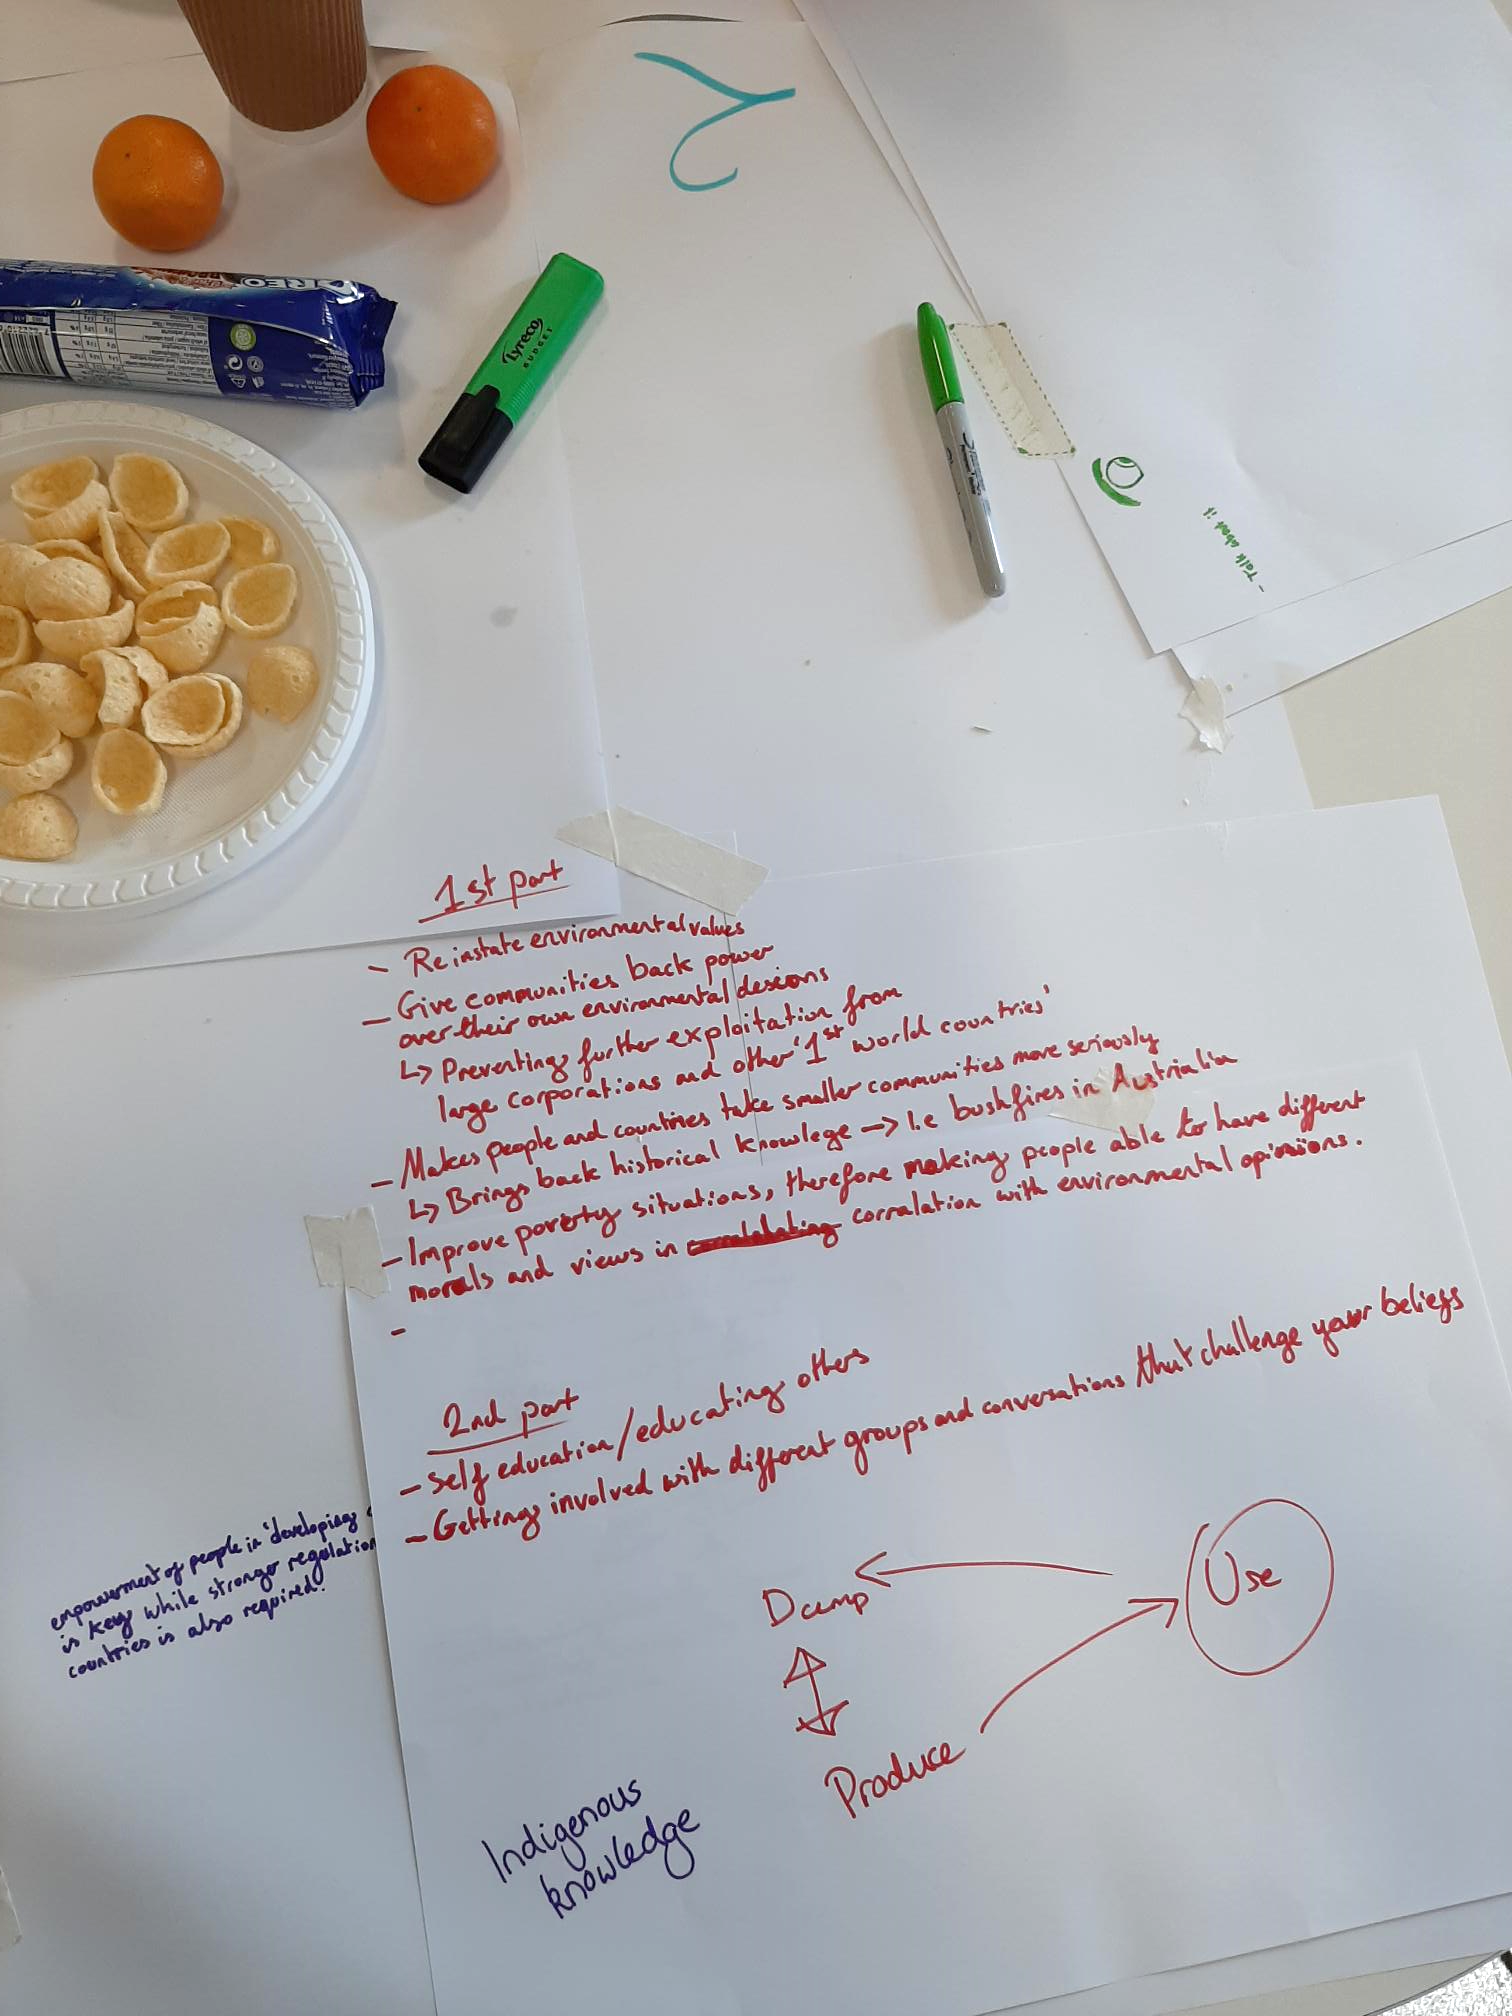 2
OREO
Lyreco
BUDGET
- Talk about it
1st part
- Reinstate environmental values
- Give communities back power
over their own environmental desions
↳ Preventing further exploitation from
large corporations and other '1st world countries'
- Makes people and countries take smaller communities more seriously
↳ Brings back historical knowlege → I.e bushfires in Austrialia
- Improve poverty situations, therefore making people able to have different
morals and views in corralation with environmental opinions.
-
2nd part
- Self education/educating others
- Getting involved with different groups and conversations that challenge your beliefs
empowerment of people in 'developing
is key while stronger regulation
countries is also required.
Dump
Use
Produce
Indigenous
knowledge